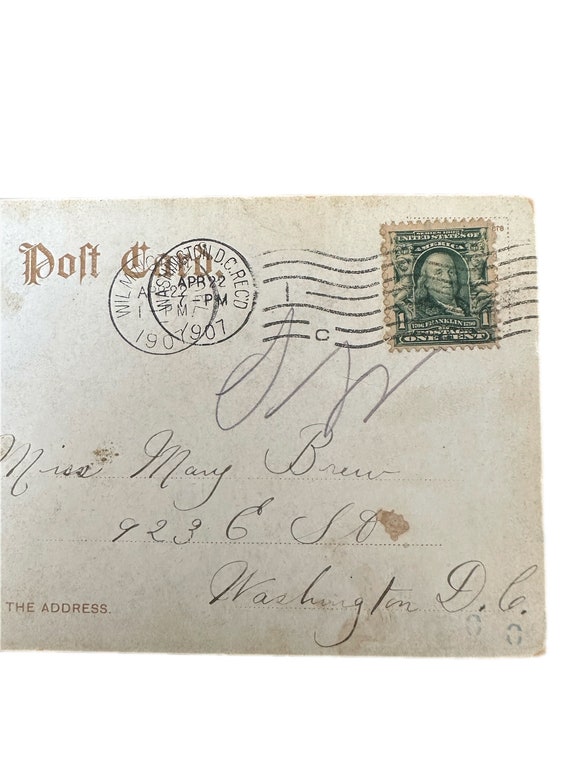 Post Card.
WILM
1907
WASHINGTON, D.C. REC'D
APR 22
7 - PM
1907
C
SERIES 1902
UNITED STATES OF
AMERICA
1 1
1706 FRANKLIN 1790
POSTAGE
ONE CENT
Miss Mary Brew
923 E St
Washington D.C.
THE ADDRESS.